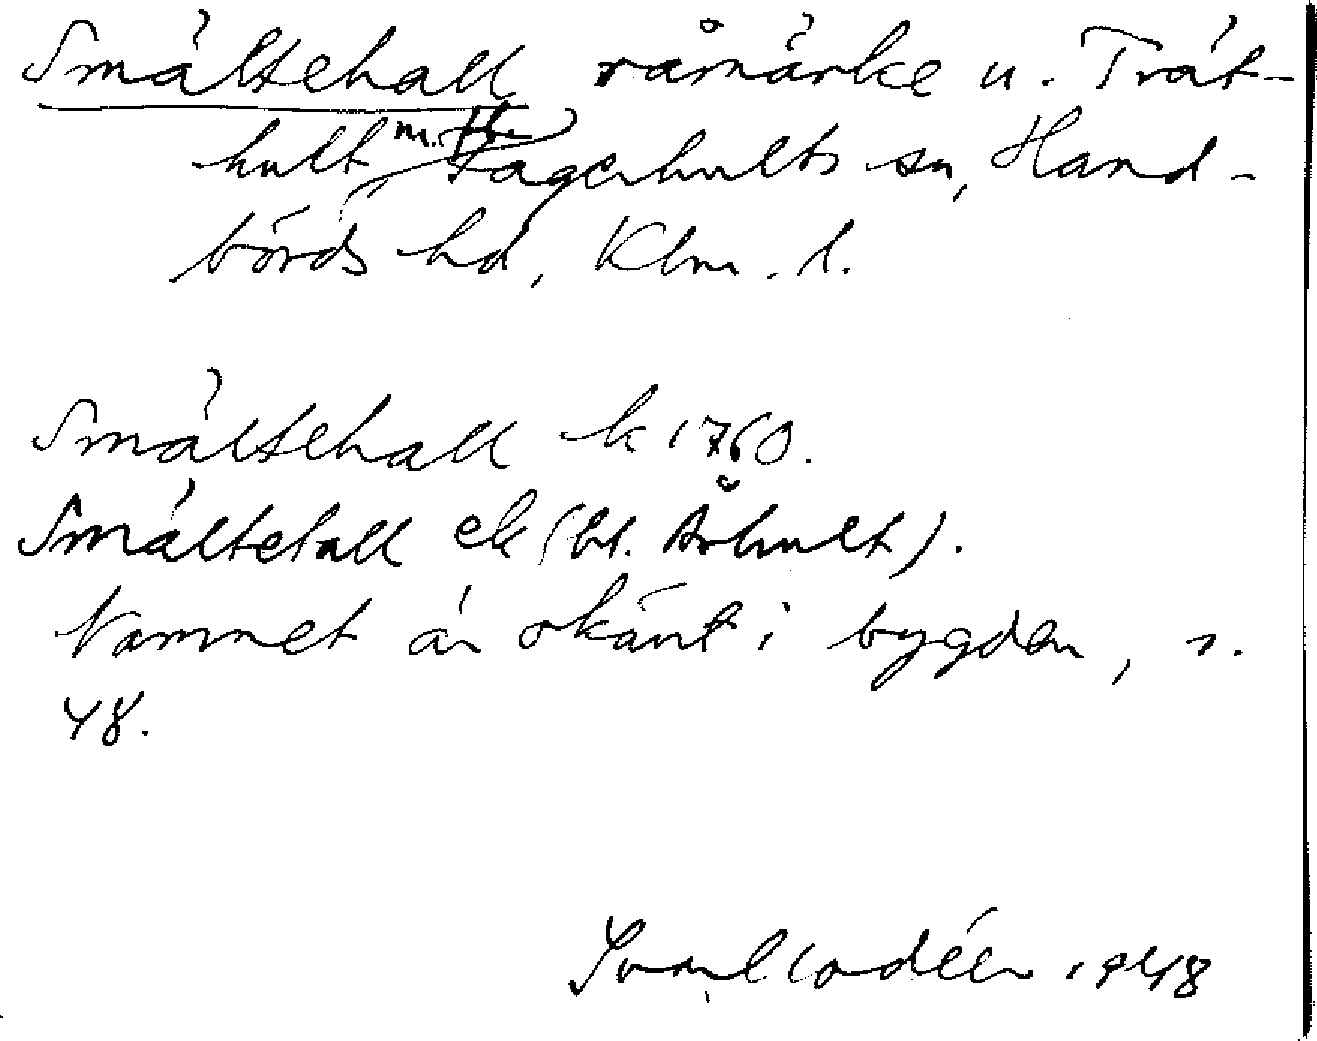 Smältehall råmärke u. Trät-
hult, m. fl. Fagerhults sn, Hand-
börds hd, Klm. l.
Smältehall k 1760.
Smältehall ek (bl. Århult).
Namnet är okänt i bygden, s.
48.
1948